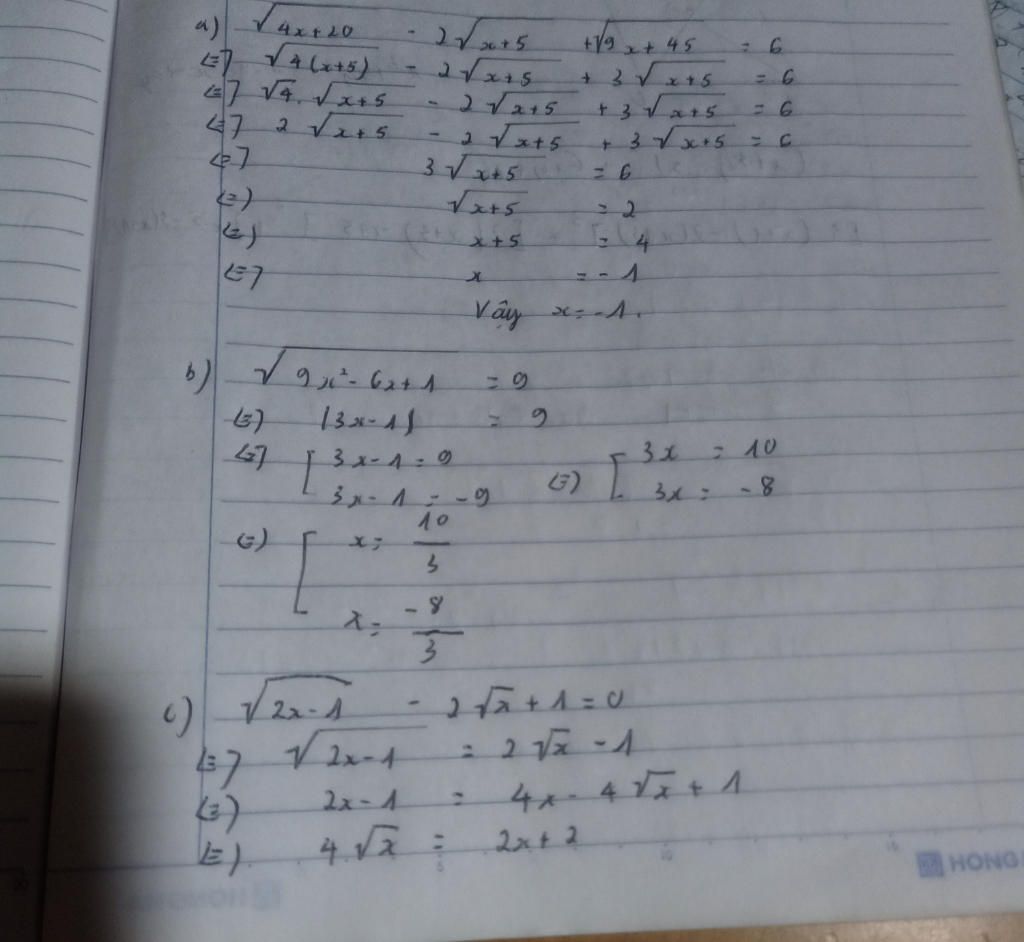 a) √(4x+20) - 2√(x+5) + √(9x+45) = 6
<=> √(4(x+5)) - 2√(x+5) + 3√(x+5) = 6
<=> √4 . √(x+5) - 2√(x+5) + 3√(x+5) = 6
<=> 2√(x+5) - 2√(x+5) + 3√(x+5) = 6
<=> 3√(x+5) = 6
<=> √(x+5) = 2
<=> x+5 = 4
<=> x = -1
Vậy x = -1.
b) √(9x²-6x+1) = 9
<=> |3x-1| = 9
<=> [ 3x-1 = 9 <=> [ 3x = 10
3x-1 = -9 3x = -8
<=> [ x = 10/3
x = -8/3
c) √(2x-1) - 2√x + 1 = 0
<=> √(2x-1) = 2√x - 1
<=> 2x-1 = 4x - 4√x + 1
<=> 4.√x = 2x+2
5 10 15
HONG